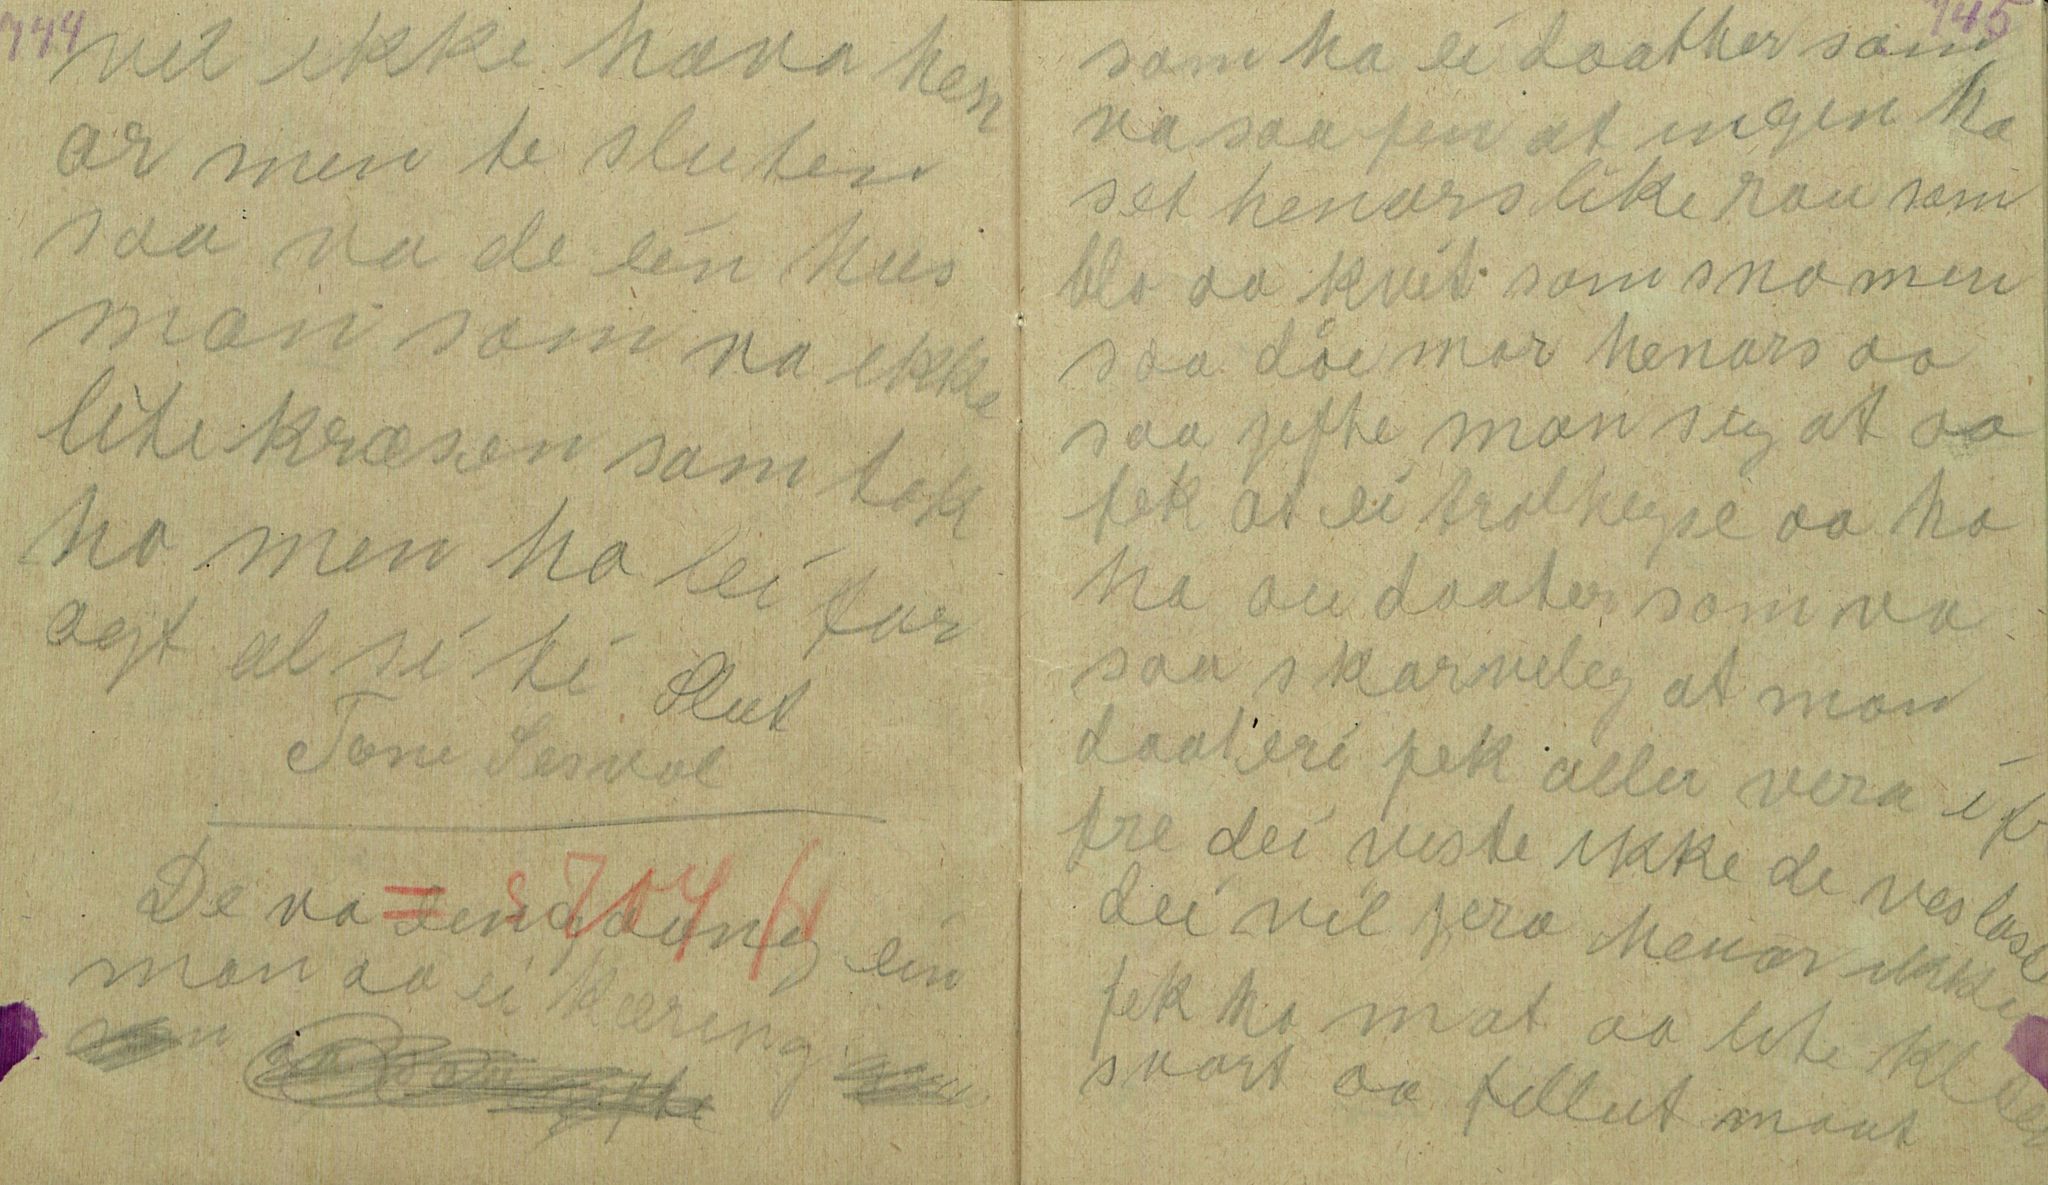 744
vil ikke hava hen
ar men te sluten
saa va de ein hus
man som va ikke
lite kræsen som tok
ho men ho lei for
agt al si ti Slut
Tone
De va eingaang ein
man aa ei kæring
145
som ha ei daatter som
va saa fin at ingen ha
set henars like rau som
blo aa kvit som sno men
saa döe mor henars aa
saa jefte man seg at aa
fek at ei trolheyse aa ho
ha au daater som va
saa skarveleg at man
daateri fek aller vera i f
fre dei viste ikke de vaslaste
dei vil jera henar ikke
fek ho mat aa lite kleer
svart aa fellut maat